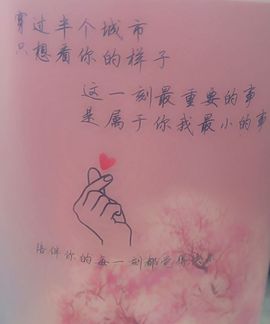 穿过半个城市
只想看你的样子
这一刻最重要的事
是属于你我最小的事
陪伴你的每一刻都觉得